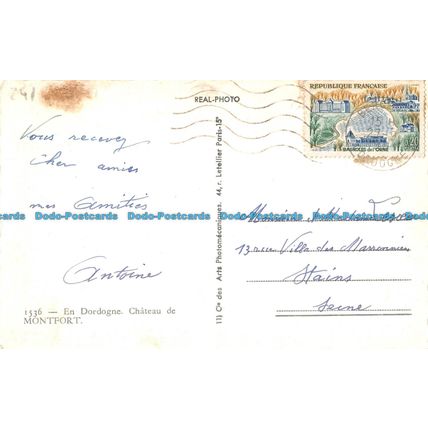 241
REAL-PHOTO
REPUBLIQUE FRANÇAISE
0,20
BAGNOLES de l'ORNE
Vous recevez
cher amies
mes Amitiés
Antoine
1536 — En Dordogne. Château de
MONTFORT.
11) Cie des Arts Photomécaniques, 44, r. Letellier Paris-15e
Monsieur
13 rue Villa des Marronniers
Stains
Seine
Dodo-Postcards Dodo-Postcards Dodo-Postcards Dodo-Postcards